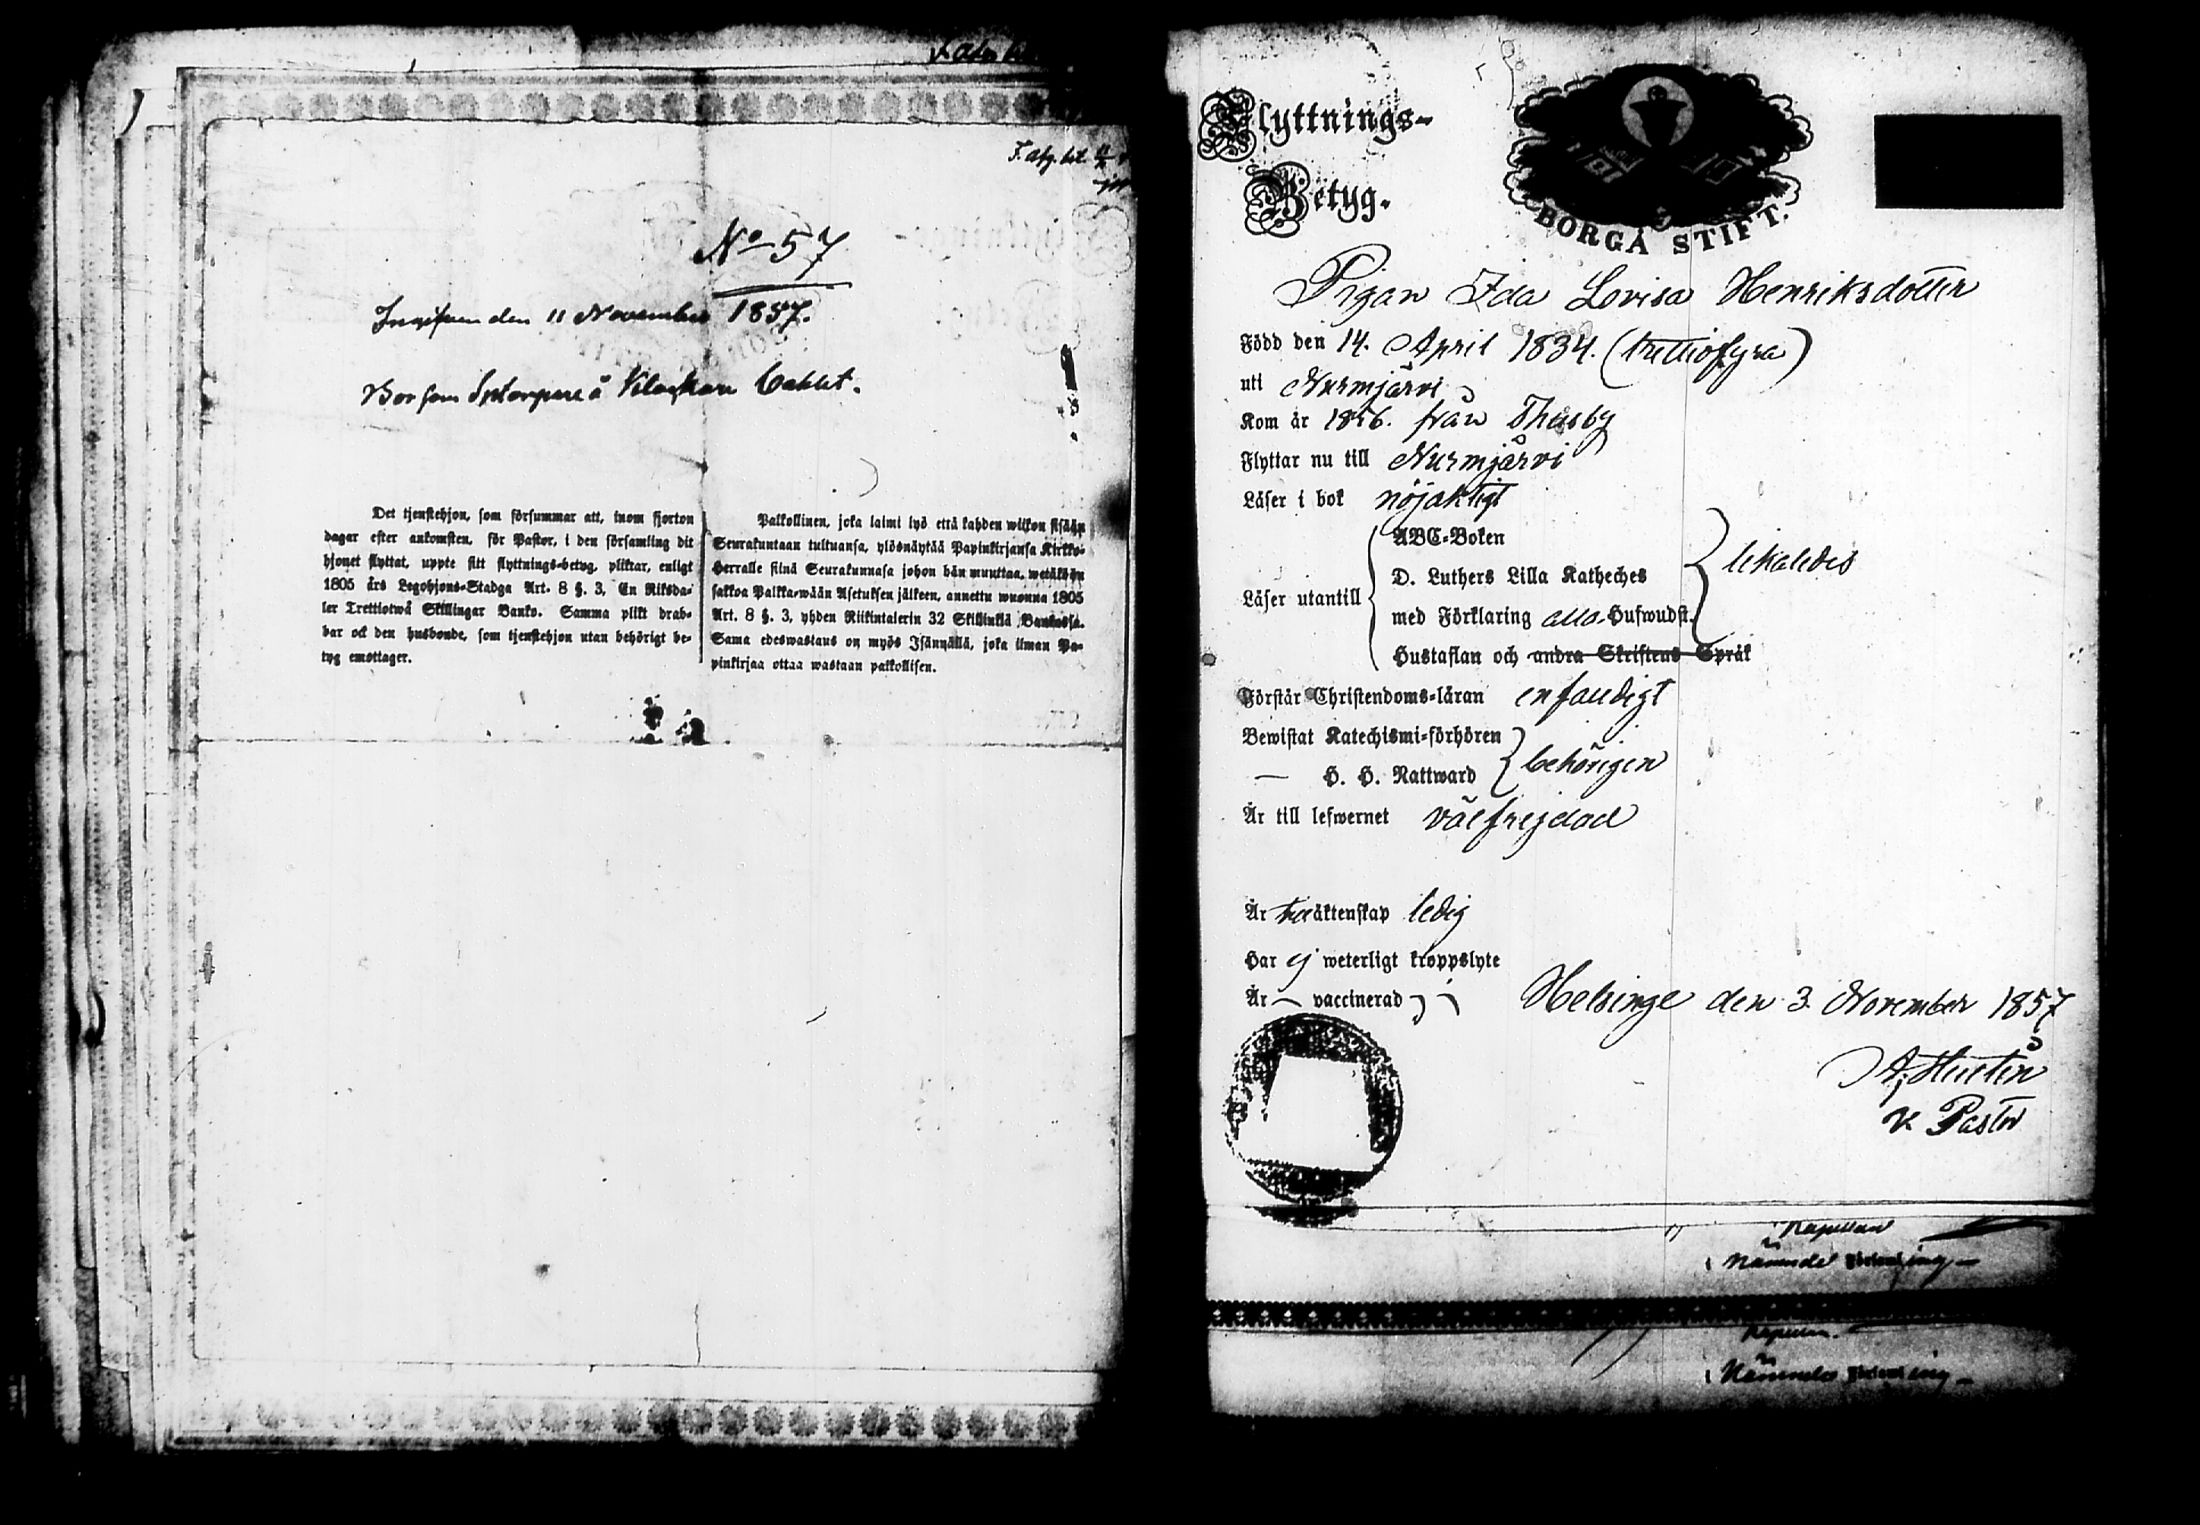 F. afg. bet.
No 57
den 11 November 1857.
Bor som å Cahlet.
Det tjenstehjon, som försummar att, inom fjorton
dagar efter ankomsten, för Pastor, i den församling dit
hjonet flyttat, uppte sitt flyttnings-betyg, pliktar, enligt
1805 års Legohjons-Stadga Art. 8 §. 3, En Riksda-
ler Trettiotwå Skillingar Banko. Samma plikt drab-
bar ock den husbonde, som tjenstehjon utan behörigt be-
tyg emottager.
Palkollinen, joka laimi lyö että kahden wiikon sisään
Seurakuntaan tultuansa, ylösnäyttää Papinkirjansa Kirkko-
Herralle siinä Seurakunnasa johon hän muuttaa, wetäköön
sakkoa Palkka-wään Asetuksen jälkeen, annettu wuonna 1805
Art. 8 §. 3, yhden Riikintalerin 32 Skillinkiä Bankossa.
Sama edeswastaus on myös Isännällä, joka ilman Pa-
pinkirjaa ottaa wastaan palkollisen.
Flyttnings-
Betyg.
BORGÅ STIFT.
Pigan Ida Lovisa Henriksdotter
Född den 14. April 1834. (trettiofyra)
uti Nurmjärvi
Kom år 1856. från Thusby
Flyttar nu till Nurmjärvi
Läser i bok nöjaktigt
Läser utantill
ABC-Boken
D. Luthers Lilla Katheches
med Förklaring alla Hufwudst.
Hustaflan och andra Skriftens Språk
Förstår Christendoms-läran enfaldigt
Bewistat Katechismi-förhören
— H. H. Nattward
behörigen
Är till lefwernet välfrejdad
Är äktenskap ledig
Har ej weterligt kroppslyte
Är — vaccinerad
Helsinge den 3 November 1857
v. Pastor
Kapellan
i Nämnde Församling —
Kapellan.
i Nämnde Församling —